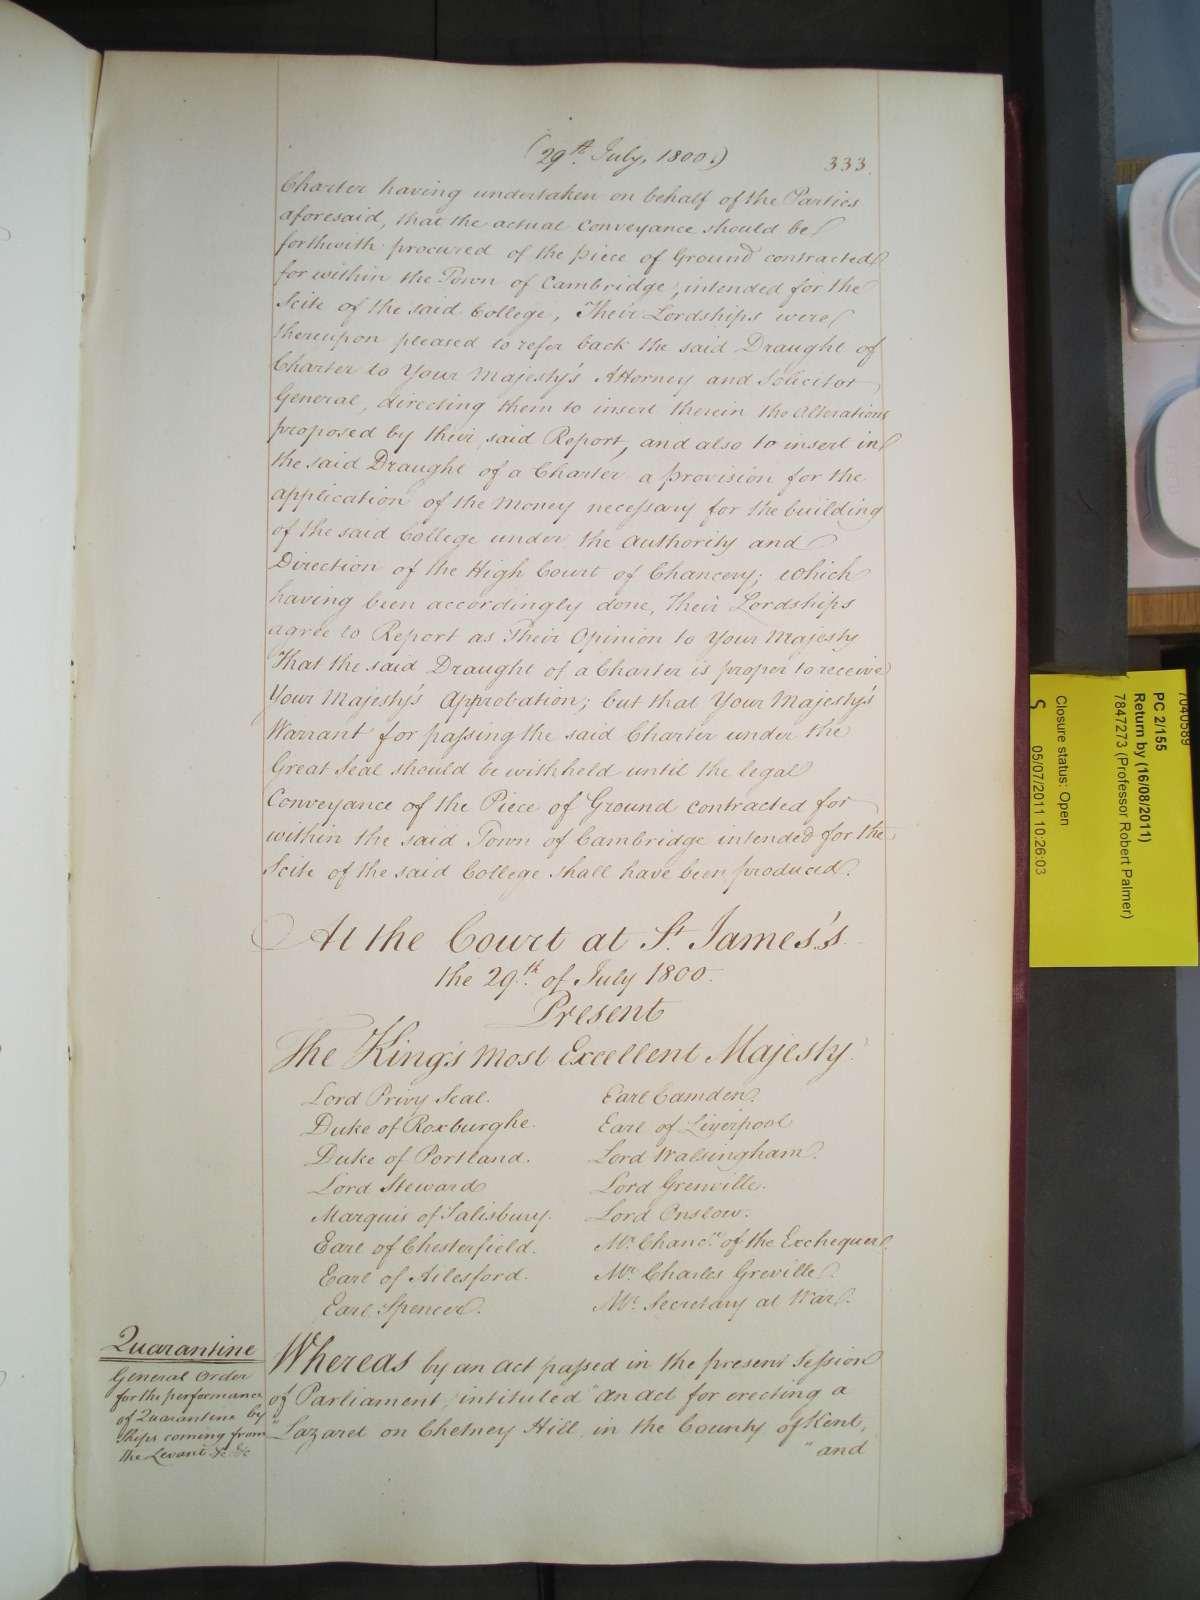 (29th July, 1800.)
333.
Charter having undertaken on behalf of the Parties
aforesaid, that the actual Conveyance should be
forthwith procured of the piece of Ground contracted
for within the Town of Cambridge, intended for the
Scite of the said College, Their Lordships were
thereupon pleased to refer back the said Draught of
Charter to Your Majesty's Attorney and Solicitor
General, directing them to insert therein the Alterations
proposed by their said Report, and also to insert in
the said Draught of a Charter a provision for the
application of the Money necessary for the building
of the said College under the Authority and
Direction of the High Court of Chancery; which
having been accordingly done, Their Lordships
agree to Report as Their Opinion to Your Majesty
That the said Draught of a Charter is proper to receive
Your Majesty's Approbation; but that Your Majesty's
Warrant for passing the said Charter under the
Great Seal should be withheld until the legal
Conveyance of the Piece of Ground contracted for
within the said Town of Cambridge intended for the
Scite of the said College shall have been produced.
At the Court at St. James's.
the 29th. of July 1800.
Present
The King's most Excellent Majesty.
Lord Privy Seal.
Duke of Roxburghe.
Duke of Portland.
Lord Steward
Marquis of Salisbury.
Earl of Chesterfield.
Earl of Ailesford.
Earl Spencer.
Earl Camden.
Earl of Liverpool
Lord Walsingham.
Lord Grenville.
Lord Onslow.
Mr. Chancr. of the Exchequer.
Mr. Charles Greville.
Mr. Secretary at War.
Quarantine
General Order
for the performance
of Quarantine by
Ships coming from
the Levant &c &c
Whereas by an act passed in the present Session
of Parliament, intituled "an act for erecting a
"Lazaret on Chetney Hill, in the County of Kent,
"and
7040589
PC 2/155
Return by (16/08/2011)
7847273 (Professor Robert Palmer)
Closure status: Open
S
05/07/2011 10:26:03